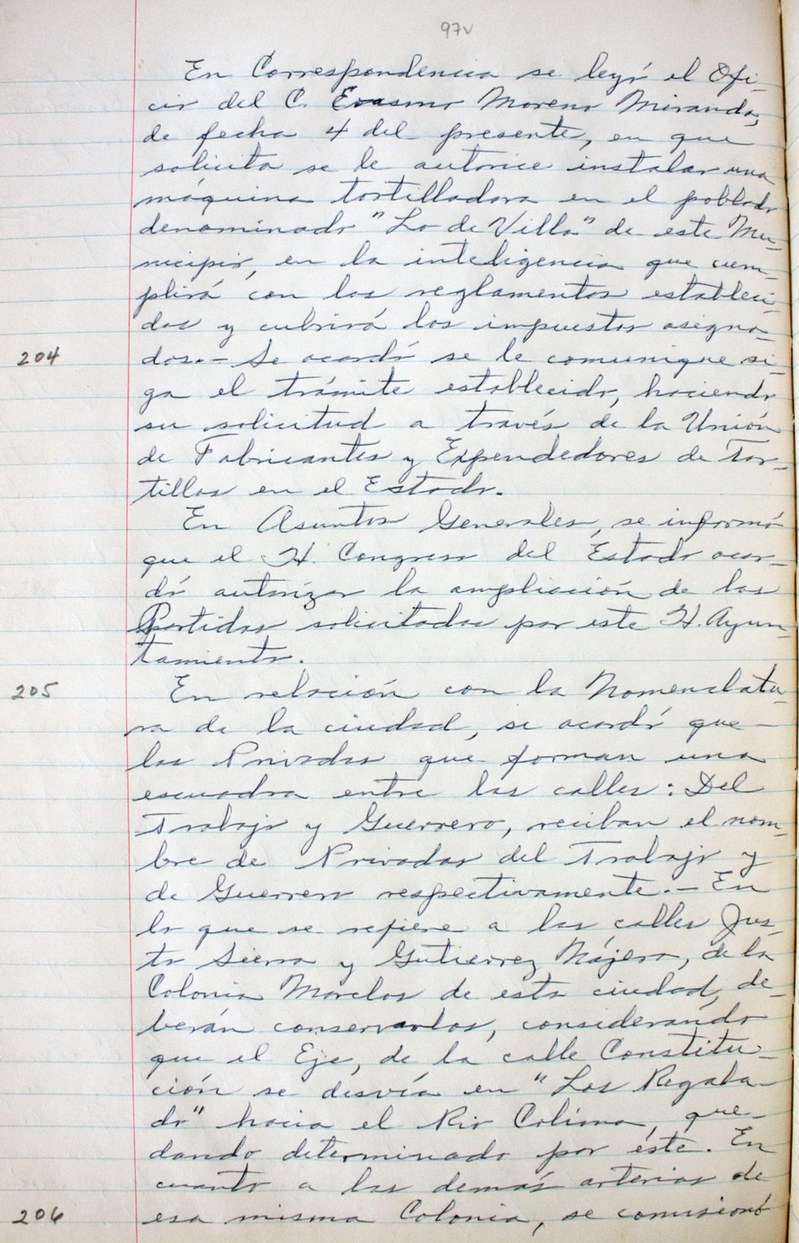 97v
En Correspondencia se leyó el Ofi-
cio del C. Erasmo Moreno Miranda,
de fecha 4 del presente, en que
solicita se le autorice instalar una
máquina tortilladora en el poblado
denominado "Lo de Villa" de este Mu-
nicipio, en la inteligencia que cum-
plirá con los reglamentos estableci-
dos y cubrirá los impuestos asigna-
204 dos.- Se acordó se le comunique si-
ga el trámite establecido, haciendo
su solicitud a través de la Unión
de Fabricantes y Expendedores de Tor-
tillas en el Estado.
En Asuntos Generales, se informó
que el H. Congreso del Estado acor-
dó autorizar la ampliación de las
Partidas solicitadas por este H. Ayun-
tamiento.
205 En relación con la Nomenclatu-
ra de la ciudad, se acordó que-
las Privadas que forman una
escuadra entre las calles: Del
Trabajo y Guerrero, reciban el nom-
bre de Privadas del Trabajo y
de Guerrero respectivamente.- En
lo que se refiere a las calles Jus-
to Sierra y Gutierrez Nájera, de la
Colonia Morelos de esta ciudad, de-
berán conservarlos, considerando
que el Eje, de la calle Constitu-
ción se desvía en "Los Regala-
do" hacia el Rio Colima, que-
dando determinado por éste. En
cuanto a las demás arterias de
206 esa misma Colonia, se comisionó